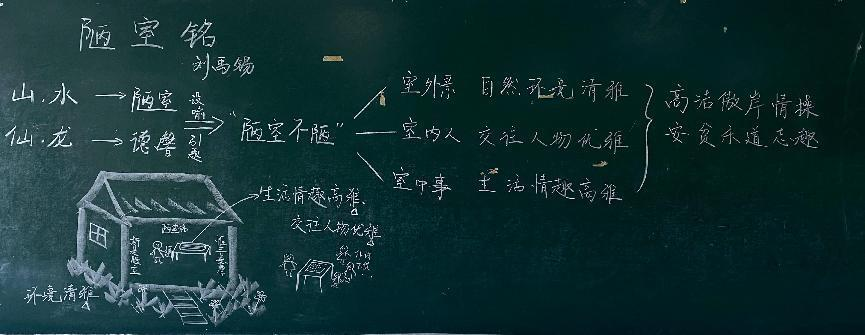 陋室铭
刘禹锡
山.水→陋室
仙.龙→德馨
设喻引题
“陋室不陋”
室外景 自然环境清雅
室内人 交往人物优雅
室中事 生活情趣高雅
高洁傲岸情操
安贫乐道志趣
生活情趣高雅、
交往人物优雅
环境清雅